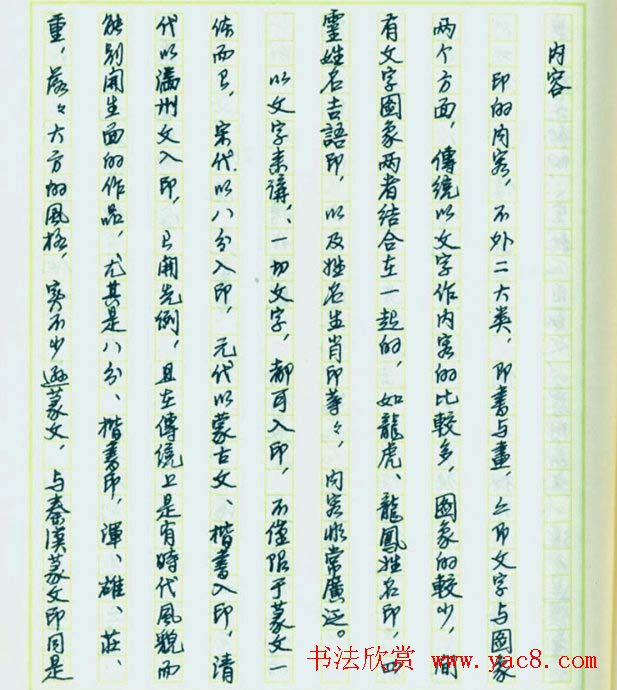 内容
印的内容，不外二大类，即書与畫，即文字与图象
两个方面，傳統以文字作内容的比較多，圖象的較少，間
有文字圖象两者结合在一起的，如龍虎、龍鳳姓名印，四
靈姓名吉語印，以及姓名生肖印等々，内容非常廣泛。
以文字来講，一切文字，都可入印，不僅限于篆文一
体而已，宋代以八分入印，元代以蒙古文、楷書入印，清
代以满州文入印，已開先例，且在傳統上是有時代風貌而
能别開生面的作品，尤其是八分、楷書印，渾、雄、莊、
重，落々大方的風格，實不少遜篆文，与秦漢篆文印同是
书法欣赏 www.yac8.com